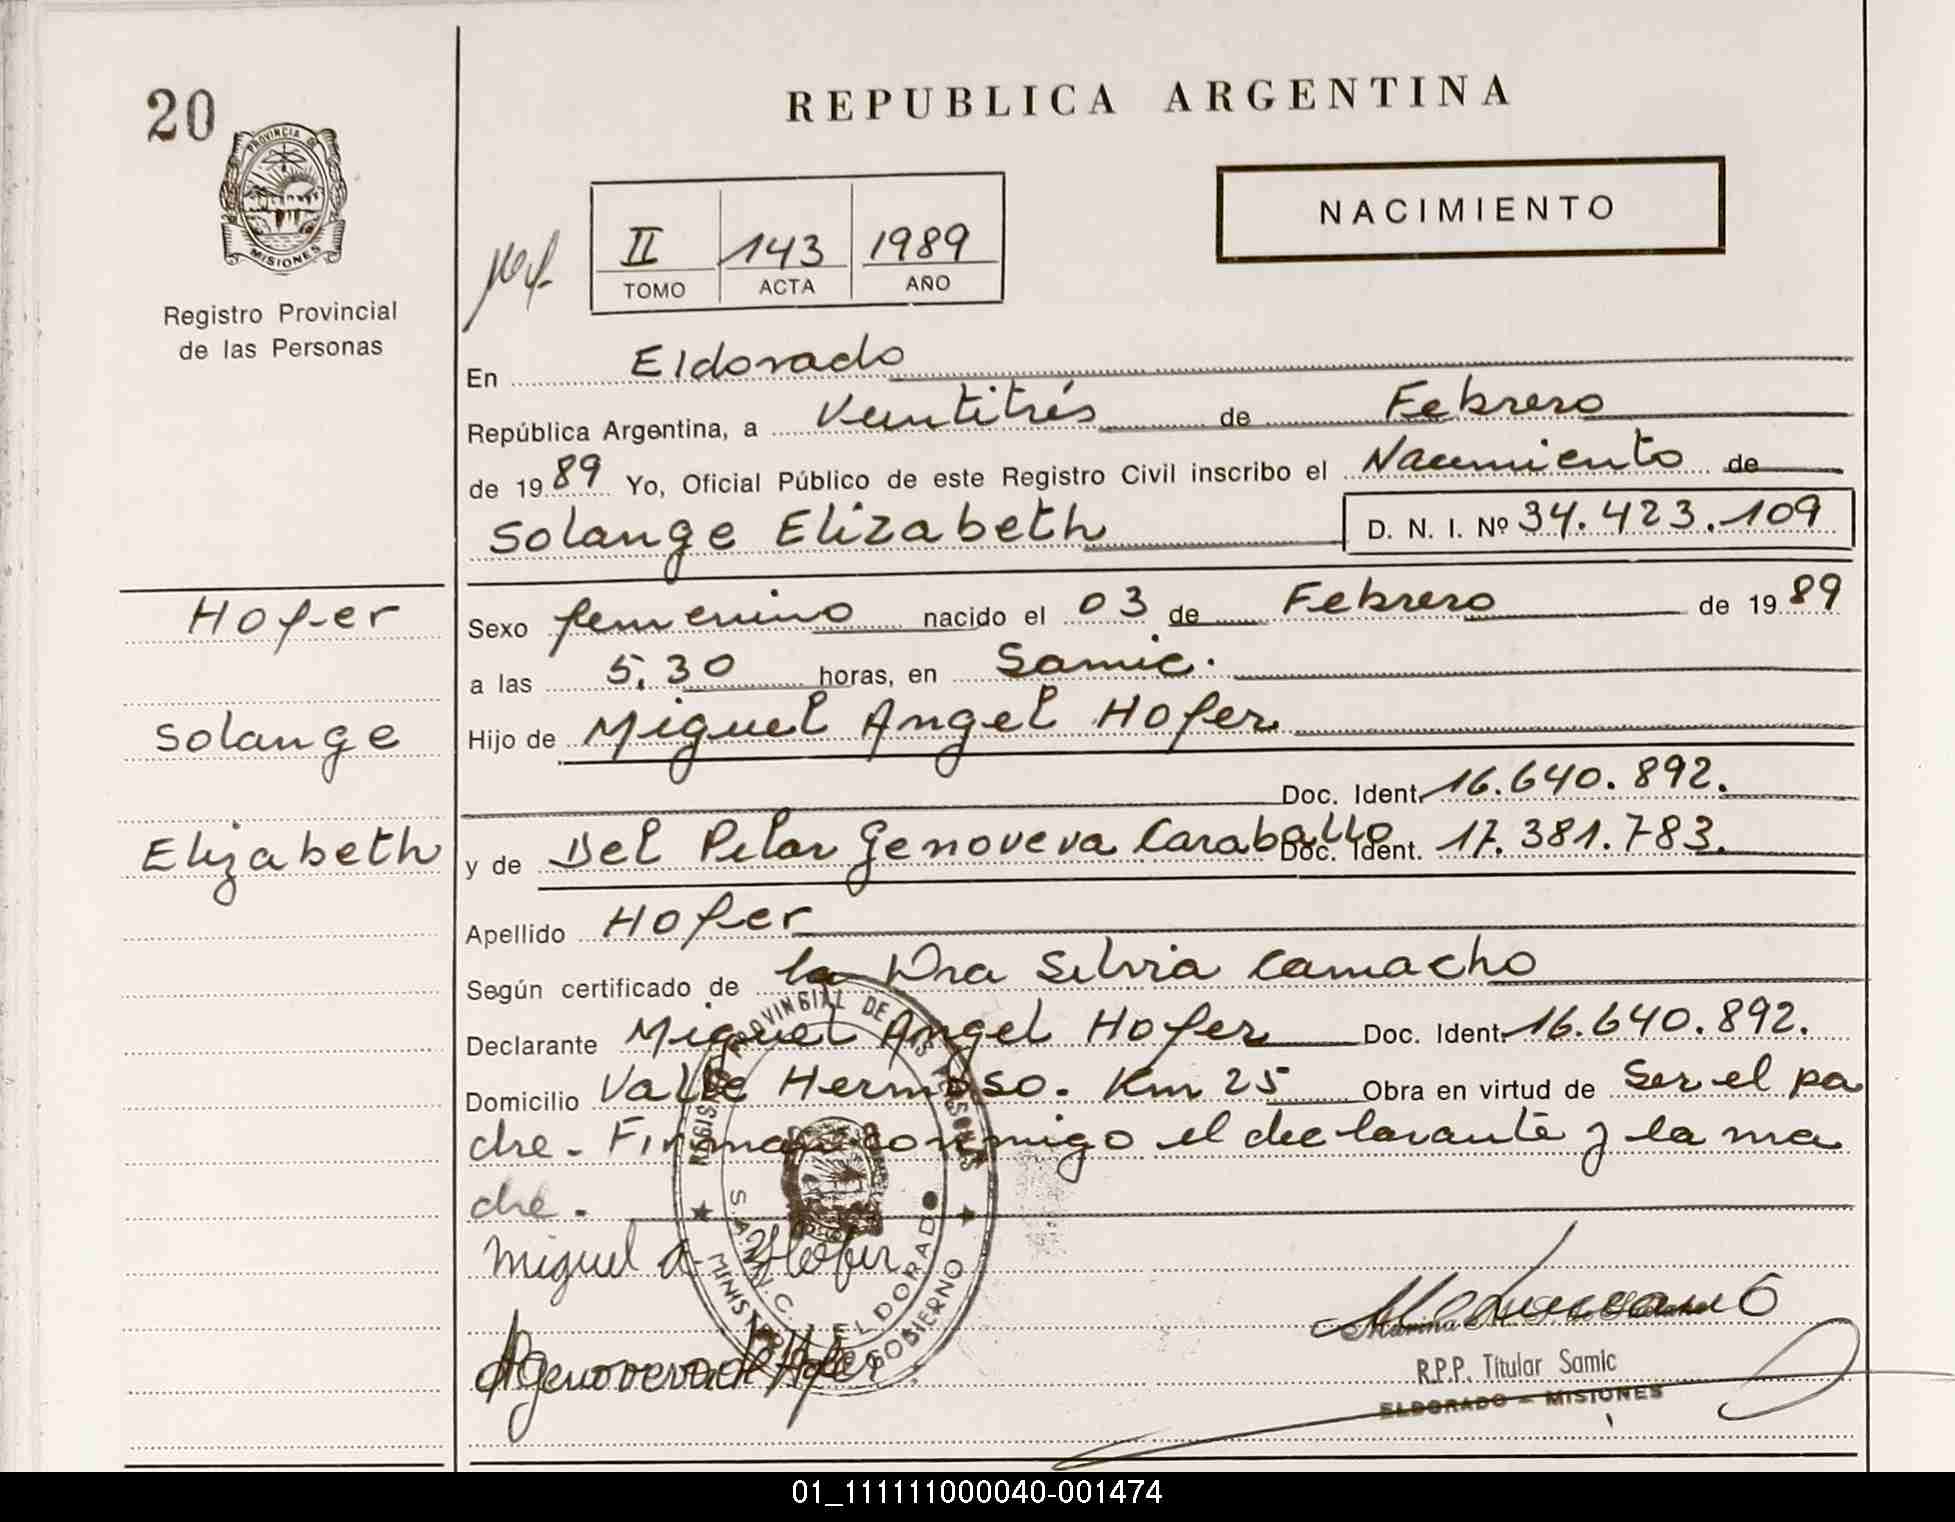 20
PROVINCIA DE
MISIONES
Registro Provincial
de las Personas
Hofer
Solange
Elizabeth
REPUBLICA ARGENTINA
II 143 1989
TOMO ACTA AÑO
NACIMIENTO
En Eldorado
República Argentina, a Veintitrés de Febrero
de 1989 Yo, Oficial Público de este Registro Civil inscribo el Nacimiento de
Solange Elizabeth D. N. I. Nº 34.423.109
Sexo femenino nacido el 03 de Febrero de 1989
a las 5.30 horas, en Samic.
Hijo de Miguel Angel Hofer
Doc. Ident. 16.640.892.
y de Del Pilar Genoveva Caraballo Doc. Ident. 17.381.783.
Apellido Hofer
Según certificado de la Dra Silvia Camacho
Declarante Miguel Angel Hofer Doc. Ident. 16.640.892.
Domicilio Valle Hermoso. Km 25 Obra en virtud de Ser el pa
dre. Firman conmigo el declarante y la ma
dre.
Miguel A. Hofer
Genoveva de Hofer
REGISTRO PROVINCIAL DE LAS PERSONAS
S.A.M.I.C. ELDORADO
MINISTERIO DE GOBIERNO
R.P.P. Titular Samic
ELDORADO - MISIONES
01_111111000040-001474